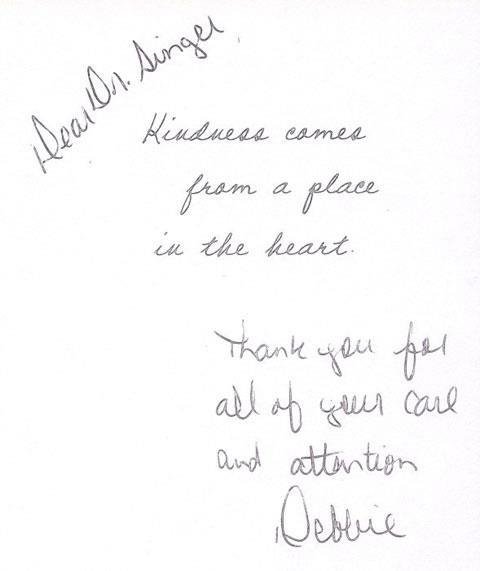 Dear Dr. Singer,
Kindness comes
from a place
in the heart.
Thank you for
all of your care
and attention
Debbie